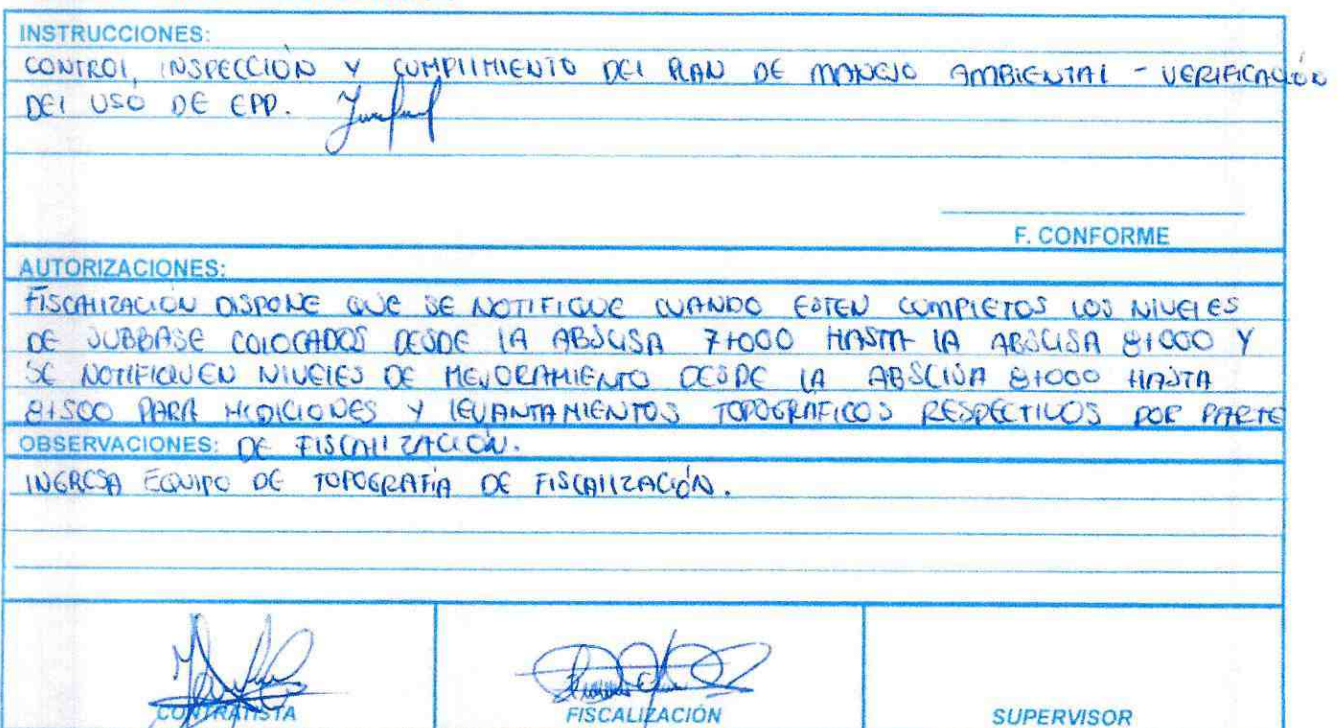 INSTRUCCIONES:
CONTROL, INSPECCIÓN Y CUMPLIMIENTO DEL PLAN DE MANEJO AMBIENTAL - VERIFICACIÓN
DEL USO DE EPP.
F. CONFORME
AUTORIZACIONES:
FISCALIZACIÓN DISPONE QUE SE NOTIFIQUE CUANDO ESTEN COMPLETOS LOS NIVELES
DE SUBBASE COLOCADOS DESDE LA ABSCISA 7+000 HASTA LA ABSCISA 8+000 Y
SE NOTIFIQUEN NIVELES DE MEJORAMIENTO DESDE LA ABSCISA 8+000 HASTA
8+500 PARA MEDICIONES Y LEVANTAMIENTOS TOPOGRAFICOS RESPECTIVOS POR PARTE
OBSERVACIONES: DE FISCALIZACIÓN.
INGRESA EQUIPO DE TOPOGRAFÍA DE FISCALIZACIÓN.
CONTRATISTA
FISCALIZACIÓN
SUPERVISOR